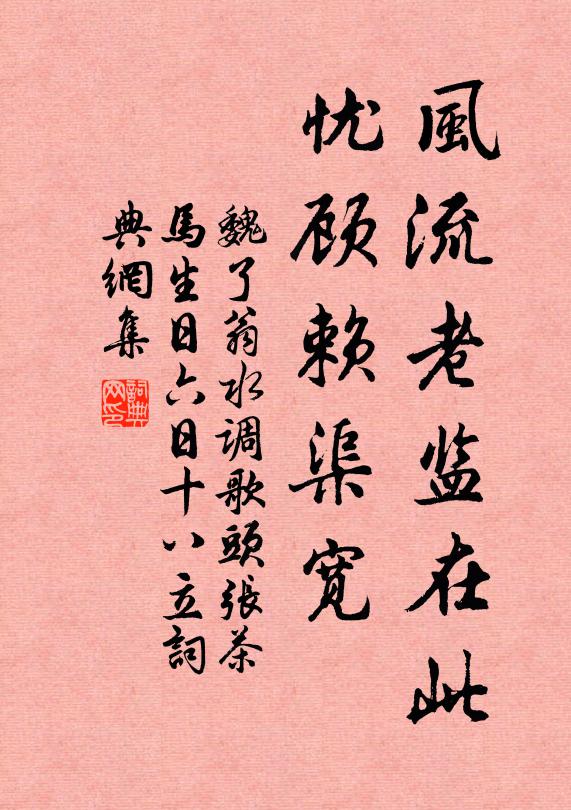 風流老监在此
忧顾赖渠宽
魏了翁水调歌頭張茶
馬生日六日十八立詞
典網集
詞典网印